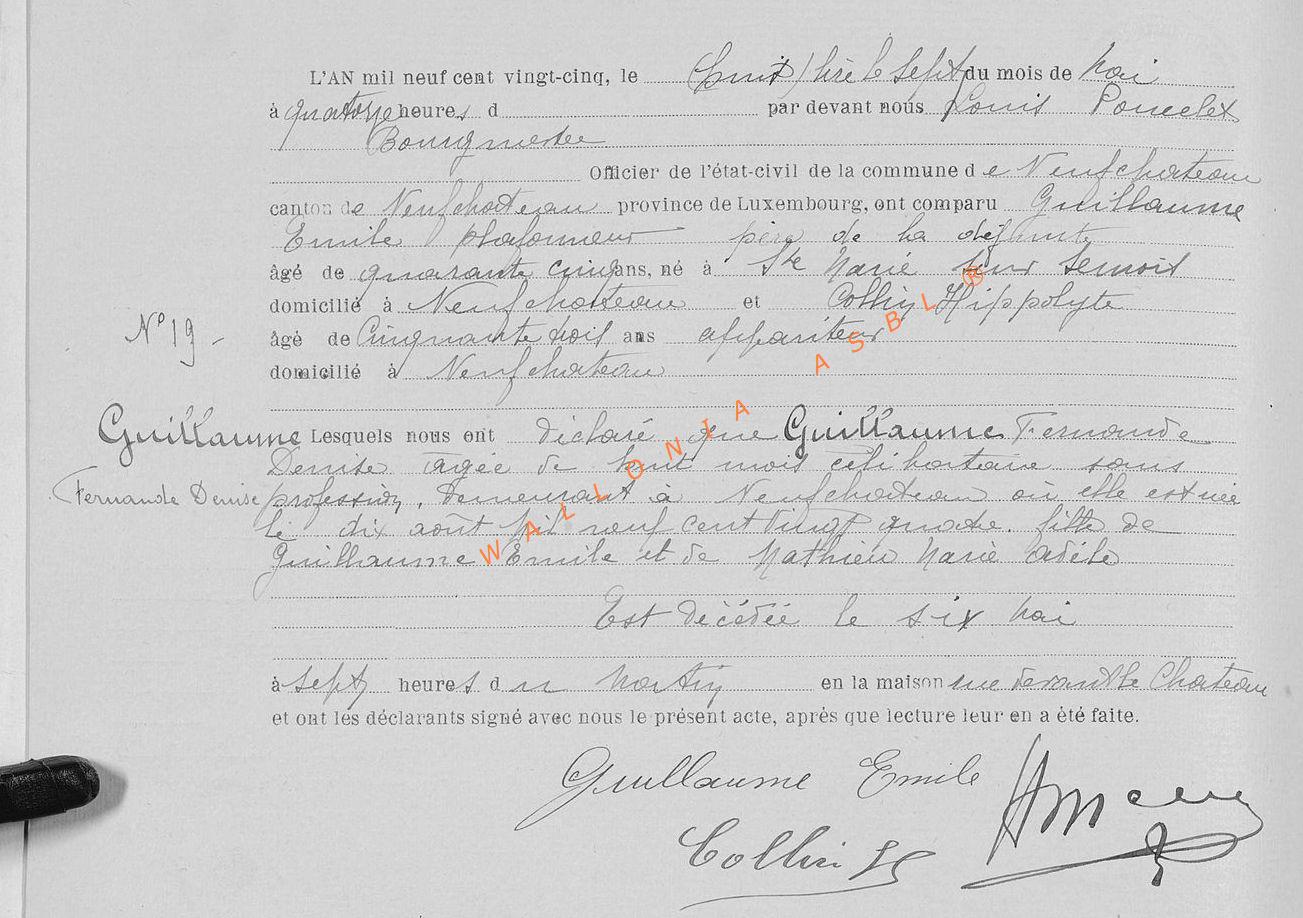 L'AN mil neuf cent vingt-cinq, le (huit) lire le sept du mois de Mai
à quatorze heures d par devant nous Louis Poncelet
Bourgmestre
Officier de l'état-civil de la commune de Neufchateau
canton de Neufchateau province de Luxembourg, ont comparu Guillaume
Emile plafonneur père de la défunte
âgé de quarante cinq ans, né à Ste Marie sur Semois
domicilié à Neufchateau et Collin Hippolyte
N° 19 - âgé de Cinquante trois ans appariteur
domicilié à Neufchateau
Guillaume Lesquels nous ont déclaré que Guillaume Fernande
Denise agée de huit mois célibataire sans
Fernande Denise profession, demeurant à Neufchateau où elle est née
le dix août mil neuf cent vingt quatre. fille de
Guillaume Emile et de Mathieu Marie Adèle
Est décédée le six Mai
à sept heures du matin en la maison rue devant le Chateau
et ont les déclarants signé avec nous le présent acte, après que lecture leur en a été faite.
Guillaume Emile
Collin H
WALLONIA ASBL ®